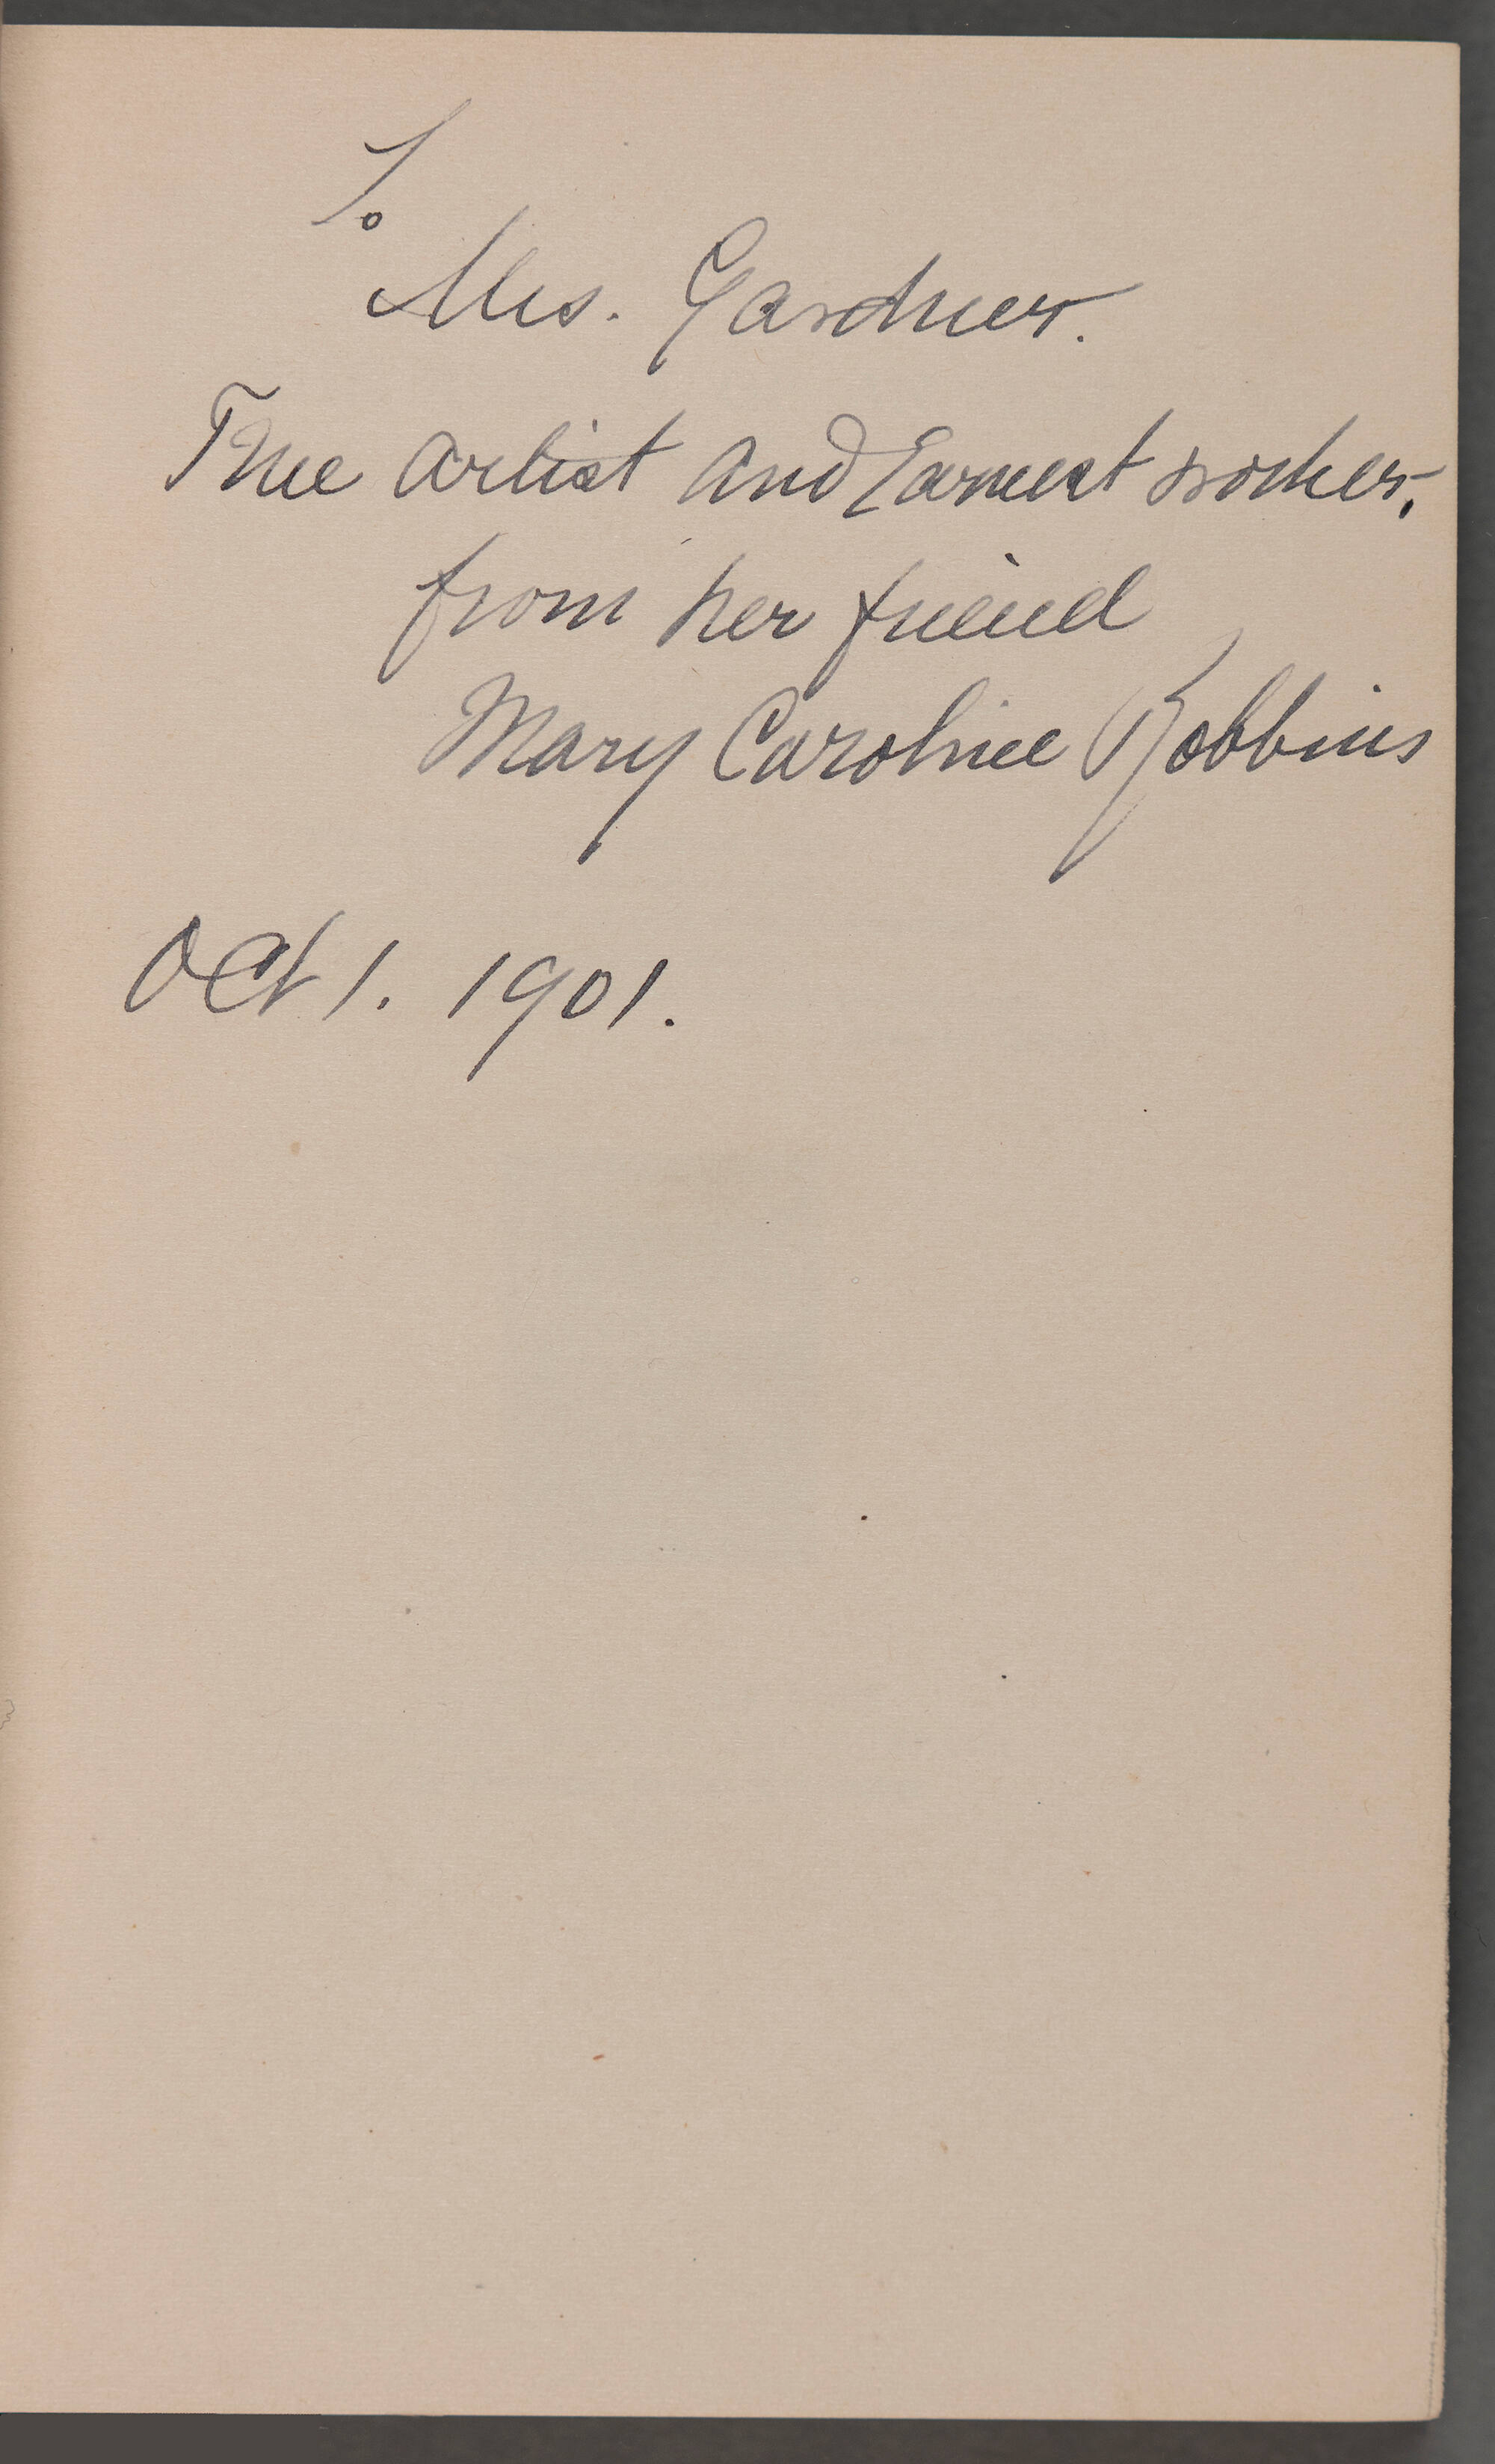 To
Mrs. Gardner.
True artist and Earnest worker,
from her friend
Mary Caroline Robbins
Oct 1. 1901.